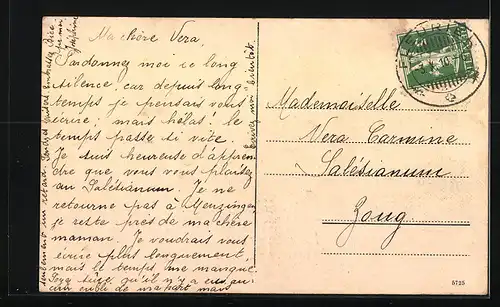 Ma chère Vera,
Pardonnez moi ce long
silence, car depuis long
temps je pensais vous
écrire, mais hélas! le
temps passe si vite.
Je suis heureuse d'appren
dre que vous vous plaisez
au Salésianum. Je ne
retourne pas à Menzingen,
je reste près de ma chère
maman. Je voudrais vous
écrire plus longuement,
mais le temps me manque.
qu'il n'y a eu
de ma part mais
seulement un retard.
Ecrivez moi bientôt.
Joséphine
Mademoiselle
Vera Carmine
Salésianum
Zoug
HELVETIA
5725